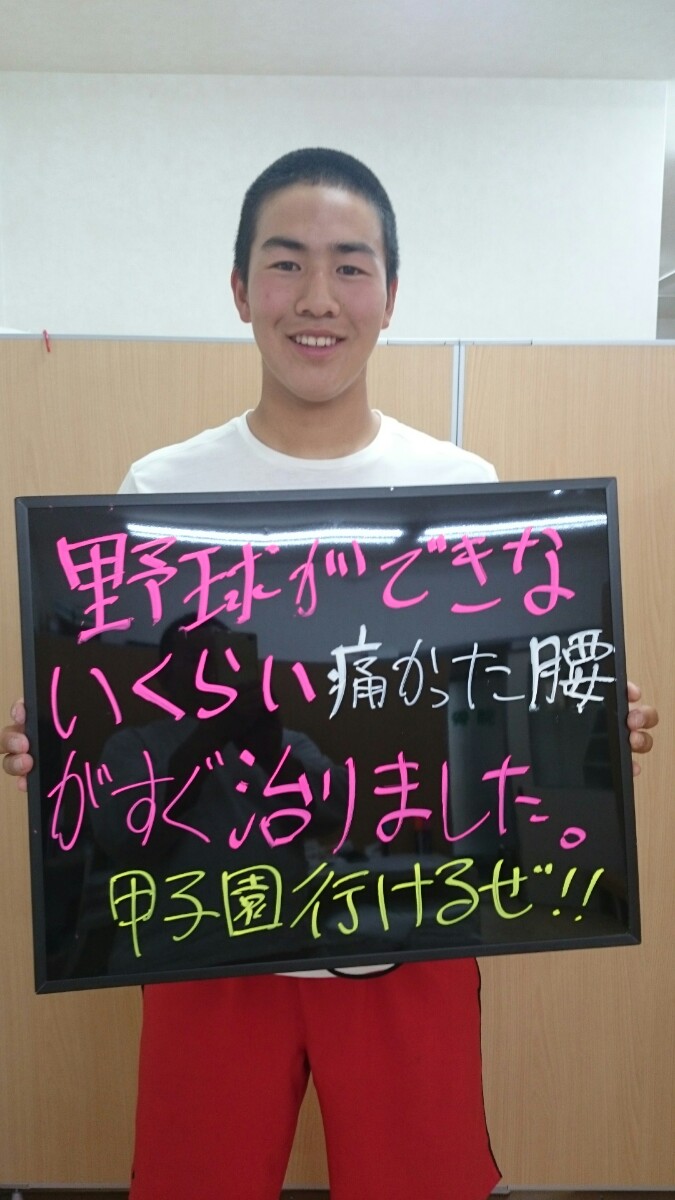 野球ができな
いくらい痛かった腰
がすぐ治りました。
甲子園行けるぜ!!